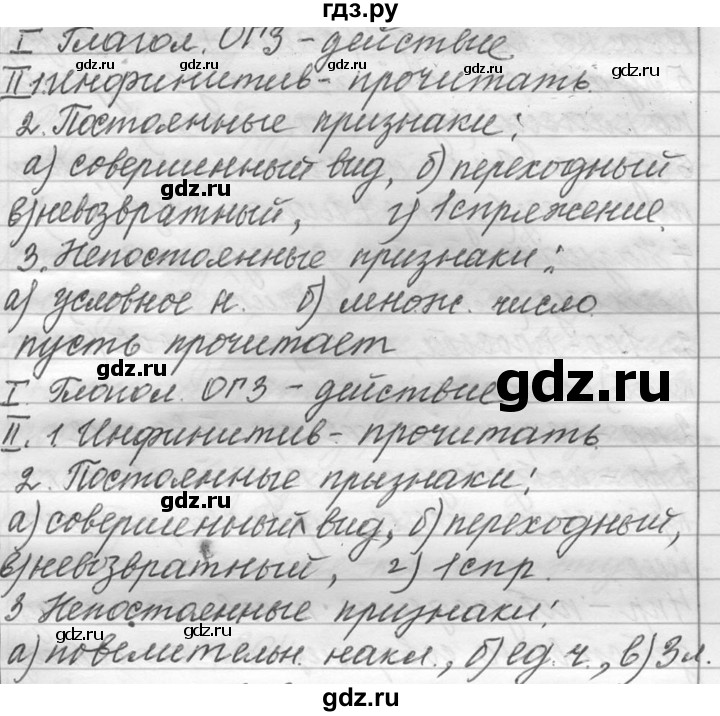 гдз.ру
I Глагол. ОГЗ - действие
II 1. Инфинитив - прочитать.
2. Постоянные признаки:
а) совершенный вид, б) переходный
gdz.ru gdz.ru
в) невозвратный, г) 1 спряжение.
3. Непостоянные признаки:
а) условное н. б) множ. число.
пусть прочитает
gdz.ru gdz.ru
I. Глагол. ОГЗ - действие
gdz.ru
II. 1. Инфинитив - прочитать.
2. Постоянные признаки:
gdz.ru gdz.ru
а) совершенный вид, б) переходный,
в) невозвратный, г) 1 спр.
3 Непостоянные признаки:
gdz.ru gdz.ru
а) повелительн. накл., б) ед. ч., в) 3 л.
gdz.ru